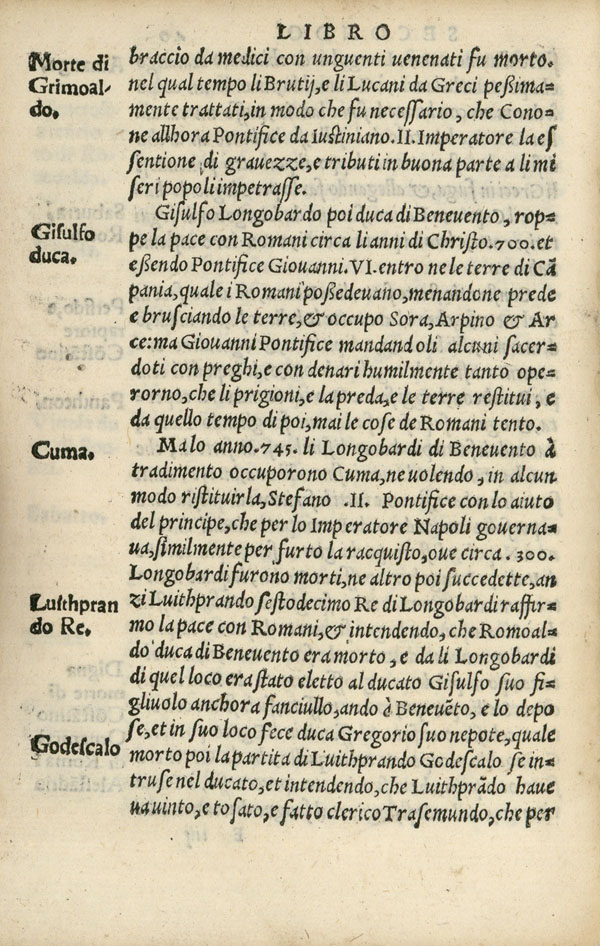 LIBRO
Morte di
Grimoal-
do.
braccio da medici con unguenti uenenati fu morto.
nel qual tempo li Brutij, e li Lucani da Greci peßima=
mente trattati, in modo che fu necessario, che Cono=
ne allhora Pontifice da Iustiniano .II. Imperatore la es
sentione di grauezze, e tributi in buona parte a li mi
seri popoli impetrasse.
Gisulfo
duca.
Gisulfo Longobardo poi duca di Beneuento, rop=
pe la pace con Romani circa li anni di Christo .700. et
eßendo Pontifice Giouanni .VI. entro ne le terre di Cã
pania, quale i Romani poßedeuano, menandone prede
e brusciando le terre, & occupo Sora, Arpino & Ar
ce: ma Giouanni Pontifice mandandoli alcuni sacer=
doti con preghi, e con denari humilmente tanto ope=
rorno, che li prigioni, e la preda, e le terre restitui, e
da quello tempo di poi, mai le cose de Romani tento.
Cuma.
Ma lo anno .745. li Longobardi di Beneuento à
tradimento occuporono Cuma, ne uolendo, in alcun
modo ristituirla, Stefano .II. Pontifice con lo aiuto
del principe, che per lo Imperatore Napoli gouerna=
ua, similmente per furto la racquisto, oue circa .300.
Longobardi furono morti, ne altro poi succedette, an
Luithpran
do Re.
zi Luithprando sestodecimo Re di Longobardi raffir=
mo la pace con Romani, & intendendo, che Romoal=
do duca di Beneuento era morto, e da li Longobardi
di quel loco era stato eletto al ducato Gisulfo suo fi=
gliuolo anchora fanciullo, ando à Beneuẽto, e lo depo
se, et in suo loco fece duca Gregorio suo nepote, quale
Godescalo
morto poi la partita di Luithprando Godescalo se in=
truse nel ducato, et intendendo, che Luithprãdo haue
ua uinto, e tosato, e fatto clerico Trasemundo, che per